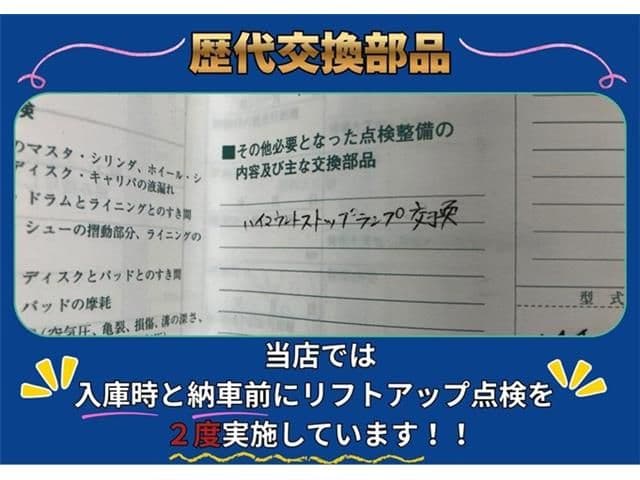 歴代交換部品
検
のマスタ・シリンダ、ホイール・シ
ディスク・キャリパの液漏れ
ドラムとライニングとのすき間
シューの摺動部分、ライニングの
ディスクとパッドとのすき間
パッドの摩耗
(空気圧、亀裂、損傷、溝の深さ、
■その他必要となった点検整備の
内容及び主な交換部品
ハイマウントストップランプ交換
型 式
当店では
入庫時と納車前にリフトアップ点検を
２度実施しています！！